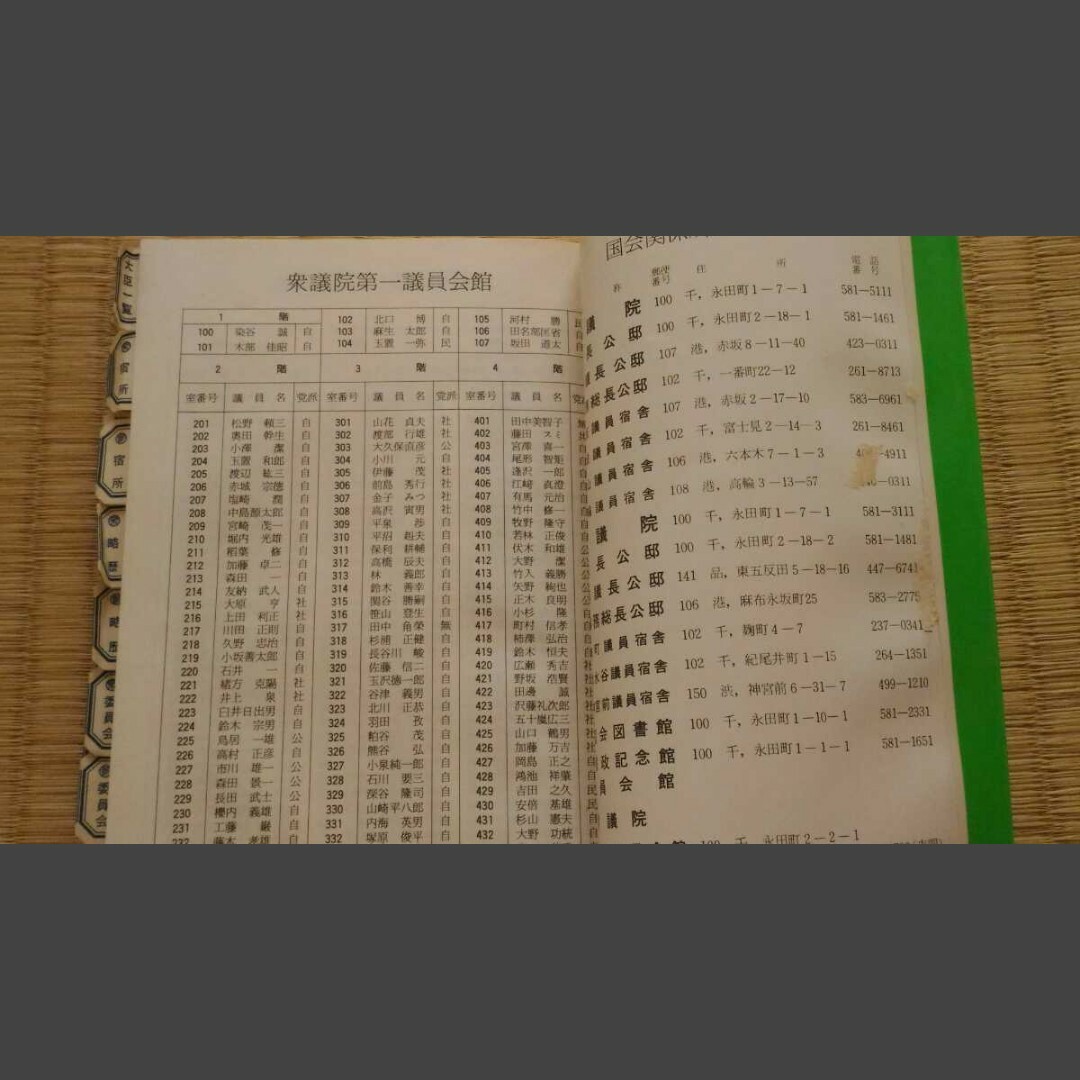 衆議院第一議員会館
1 階 102 北口 博 自 105 河村 勝 民
100 染谷 誠 自 103 麻生 太郎 自 106 田名部匡省 自
101 木部 佳昭 自 104 玉置 一弥 民 107 坂田 道太 自
2 階 3 階 4 階
室番号 議員名 党派 室番号 議員名 党派 室番号 議員名
201 松野 頼三 自 301 山花 貞夫 社 401 田中美智子
202 奥田 幹生 自 302 渡部 行雄 社 402 藤田 スミ
203 小澤 潔 自 303 大久保直彦 公 403 宮澤 喜一
204 玉置 和郎 自 304 小川 元 自 404 尾形 智矩
205 渡辺 紘三 自 305 伊藤 茂 社 405 逢沢 一郎
206 赤城 宗徳 自 306 前島 秀行 社 406 江崎 真澄
207 塩崎 潤 自 307 金子 みつ 社 407 有馬 元治
208 中島源太郎 自 308 高沢 寅男 社 408 竹中 修一
209 宮崎 茂一 自 309 平泉 渉 自 409 牧野 隆守
210 堀内 光雄 自 310 平沼 赳夫 自 410 若林 正俊
211 稲葉 修 自 311 保利 耕輔 自 411 伏木 和雄
212 加藤 卓二 自 312 高橋 辰夫 自 412 大野 潔
213 森田 一 自 313 林 義郎 自 413 竹入 義勝
214 友納 武人 自 314 鈴木 善幸 自 414 矢野 絢也
215 大原 亨 社 315 関谷 勝嗣 自 415 正木 良明
216 上田 利正 社 316 笹山 登生 自 416 小杉 隆
217 川田 正則 自 317 田中 角榮 無 417 町村 信孝
218 久野 忠治 自 318 杉浦 正健 自 418 柿澤 弘治
219 小坂善太郎 自 319 長谷川 峻 自 419 鈴木 恒夫
220 石井 一 自 320 佐藤 信二 自 420 広瀬 秀吉
221 緒方 克陽 社 321 玉沢徳一郎 自 421 野坂 浩賢
222 井上 泉 社 322 谷津 義男 自 422 田邊 誠
223 臼井日出男 自 323 北川 正恭 自 423 沢藤礼次郎
224 鈴木 宗男 自 324 羽田 孜 自 424 五十嵐広三
225 鳥居 一雄 公 325 粕谷 茂 自 425 山口 鶴男
226 高村 正彦 自 326 熊谷 弘 自 426 加藤 万吉
227 市川 雄一 公 327 小泉純一郎 自 427 岡島 正之
228 森田 景一 公 328 石川 要三 自 428 鴻池 祥肇
229 長田 武士 公 329 深谷 隆司 自 429 吉田 之久
230 櫻内 義雄 自 330 山崎平八郎 自 430 安倍 基雄
231 工藤 巖 自 331 内海 英男 自 431 杉山 憲夫
232 藤本 孝雄 332 塚原 俊平 自 432 大野 功統
国会関係
称 郵便番号 住 所 電話番号
議 院 100 千,永田町1-7-1 581-5111
長公邸 100 千,永田町2-18-1 581-1461
議長公邸 107 港,赤坂8-11-40 423-0311
総長公邸 102 千,一番町22-12 261-8713
議員宿舎 107 港,赤坂2-17-10 583-6961
議員宿舎 102 千,富士見2-14-3 261-8461
議員宿舎 106 港,六本木7-1-3 4911
議員宿舎 108 港,高輪3-13-57 0311
議 院 100 千,永田町1-7-1 581-3111
長公邸 100 千,永田町2-18-2 581-1481
議長公邸 141 品,東五反田5-18-16 447-6741
務総長公邸 106 港,麻布永坂町25 583-2775
町議員宿舎 102 千,麹町4-7 237-0341
水谷議員宿舎 102 千,紀尾井町1-15 264-1351
宮前議員宿舎 150 渋,神宮前6-31-7 499-1210
会図書館 100 千,永田町1-10-1 581-2331
政記念館 100 千,永田町1-1-1 581-1651
員会館
議院
100 千,永田町2-2-1
大臣一覧
宿所
宿所
略歴
略歴
委員会
委員会